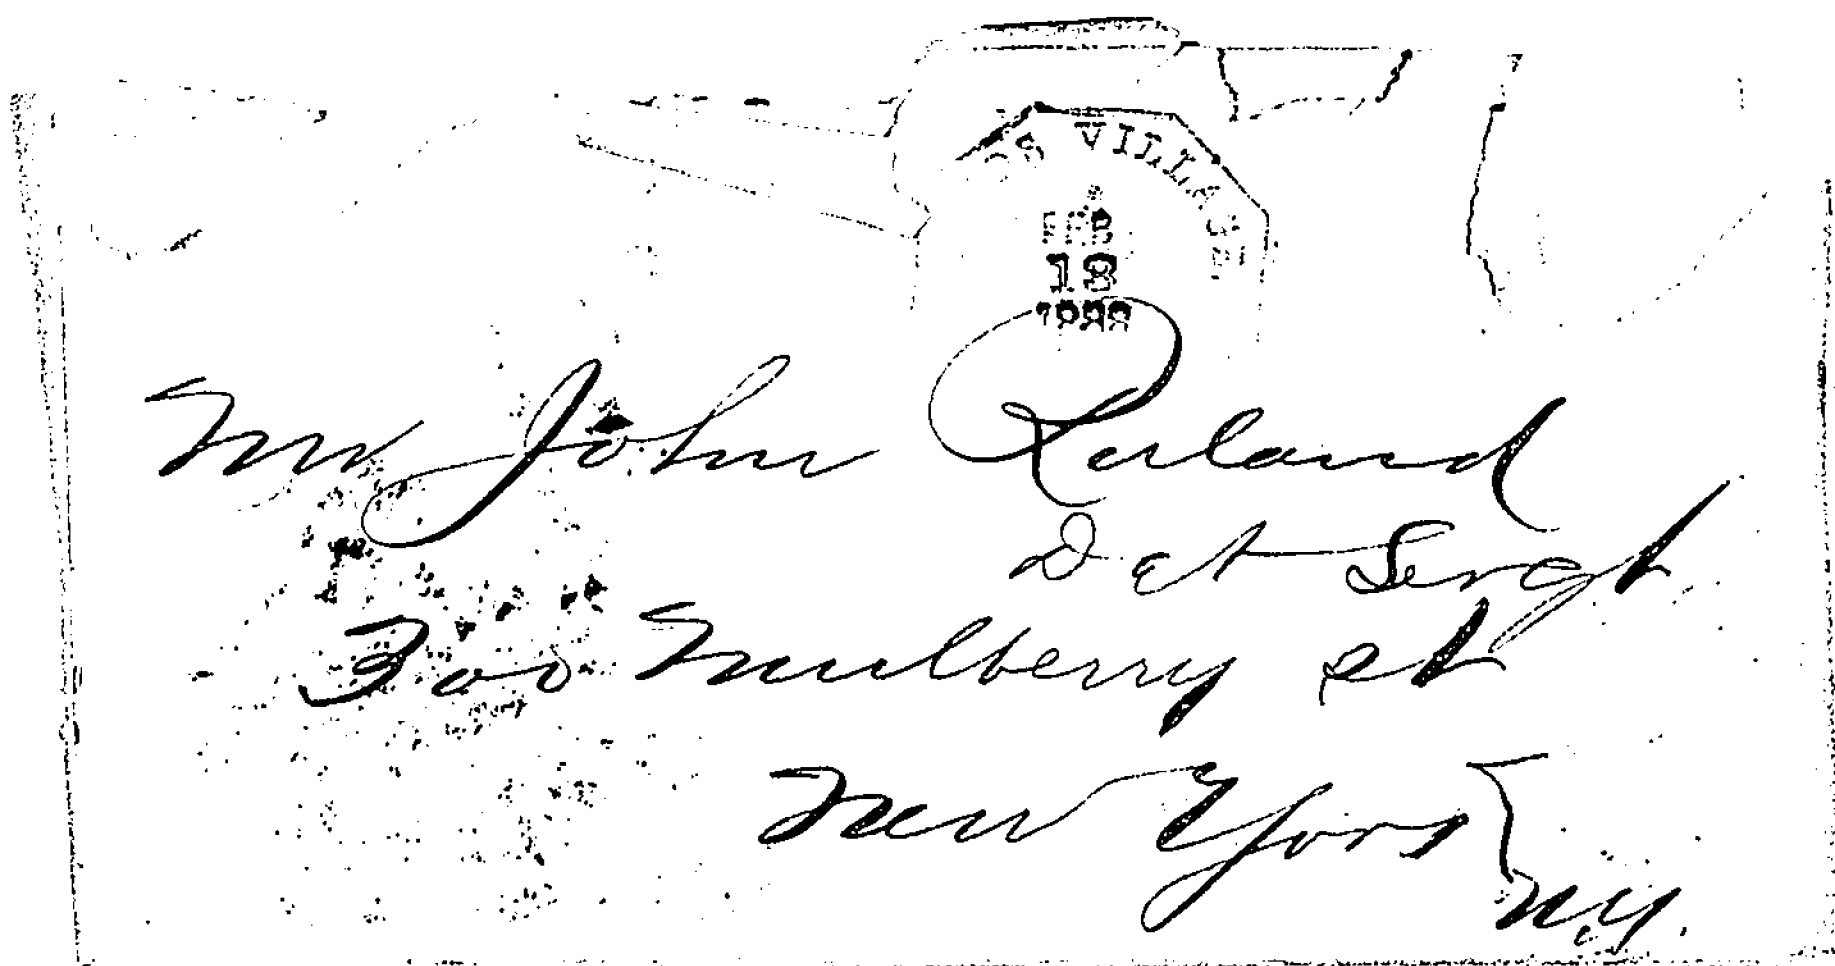 VILLAGE
FEB
18
Mr John Ruland
Det Sergt
300 Mulberry st
New York
NY.